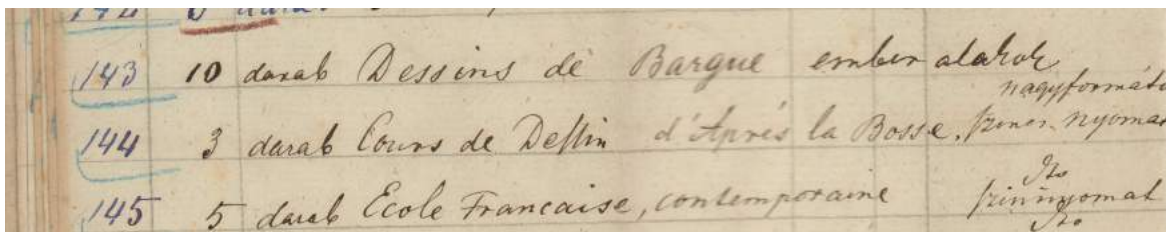 143 10 darab Dessins de Bargue ember alakok
nagyformátu
144 3 darab Cours de Deßin d'Aprés la Bosse. szines. nyomat
145 5 darab Ecole Francaise, contemporaine szinnyomat